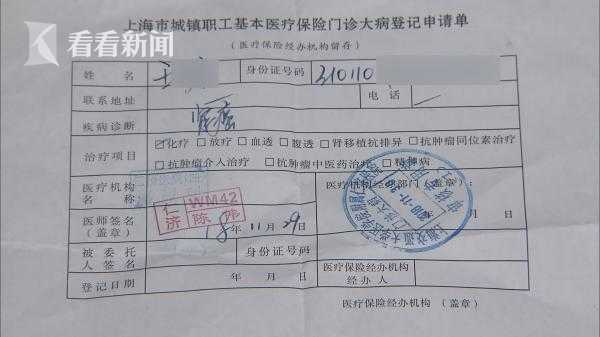 看看新闻
上海市城镇职工基本医疗保险门诊大病登记申请单
（医疗保险经办机构留存）
姓名 王 身份证号码 310110
联系地址 电话
疾病诊断 肾癌
治疗项目 ☑化疗 □放疗 □血透 □腹透 □肾移植抗排异 □抗肿瘤同位素治疗
□抗肿瘤介入治疗 □抗肿瘤中医药治疗 □精神病
医疗机构名称 医疗机构经办部门（盖章）：
年 月 日
医师签名（盖章） 仁济 WM42 陈 18年11月29日
被委托人签名 身份证号码
登记日期 年 月 日 医疗保险经办机构经办人
医疗保险经办机构（盖章）